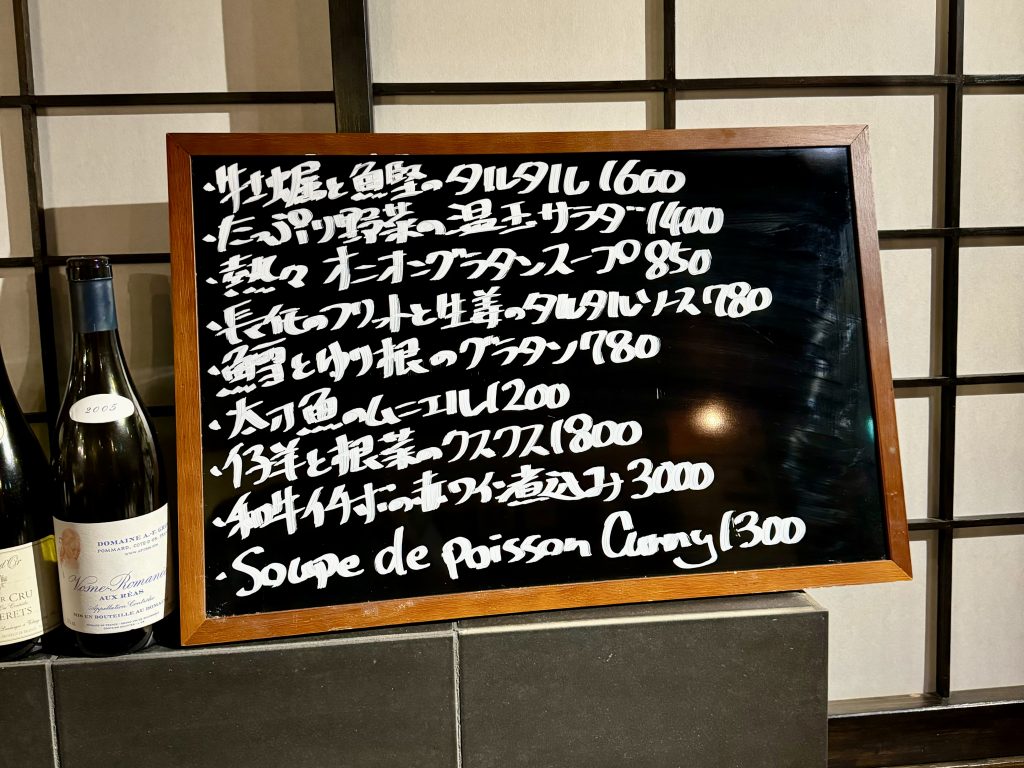 ・牡蠣と鰹のタルタル 1600
・たっぷり野菜の温玉サラダ 1400
・熱々 オニオングラタンスープ 850
・長芋のフリットと生姜のタルタルソース 780
・鱈とゆり根のグラタン 780
・太刀魚のムニエル 1200
・仔羊と根菜のクスクス 1800
・和牛イチボの赤ワイン煮込み 3000
・Soupe de poisson Curry 1300
2005
DOMAINE A.-F. GR
POMMARD, CÔTE-D'OR
Vosne-Romanée
AUX RÉAS
Appellation Contrôlée
MIS EN BOUTEILLE AU DOMAINE
CRU